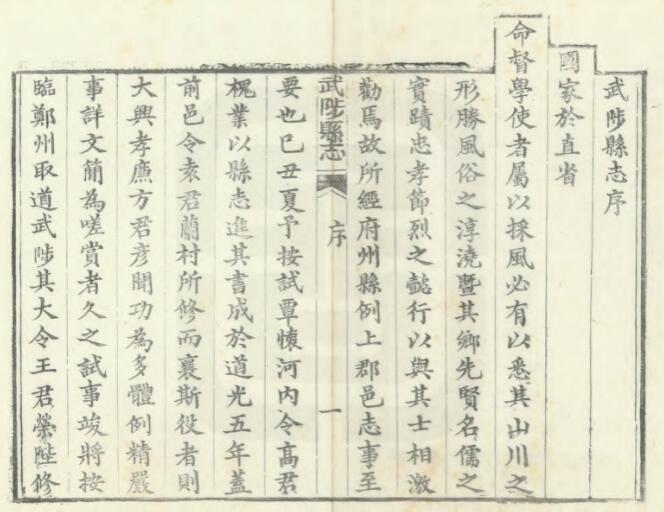 武陟縣志序
國家於直省
命督學使者屬以採風必有以悉其山川之
形勝風俗之淳澆暨其鄉先賢名儒之
實蹟忠孝節烈之懿行以與其士相激
勸焉故所經府州縣例上郡邑志事至
武陟縣志 序 一
要也己丑夏予按試覃懷河内令高君
槐業以縣志進其書成於道光五年蓋
前邑令袁君蘭村所修而襄斯役者則
大興孝廉方君彦聞功為多體例精嚴
事詳文簡為嗟賞者久之試事竣將按
臨鄭州取道武陟其大令王君榮陛修